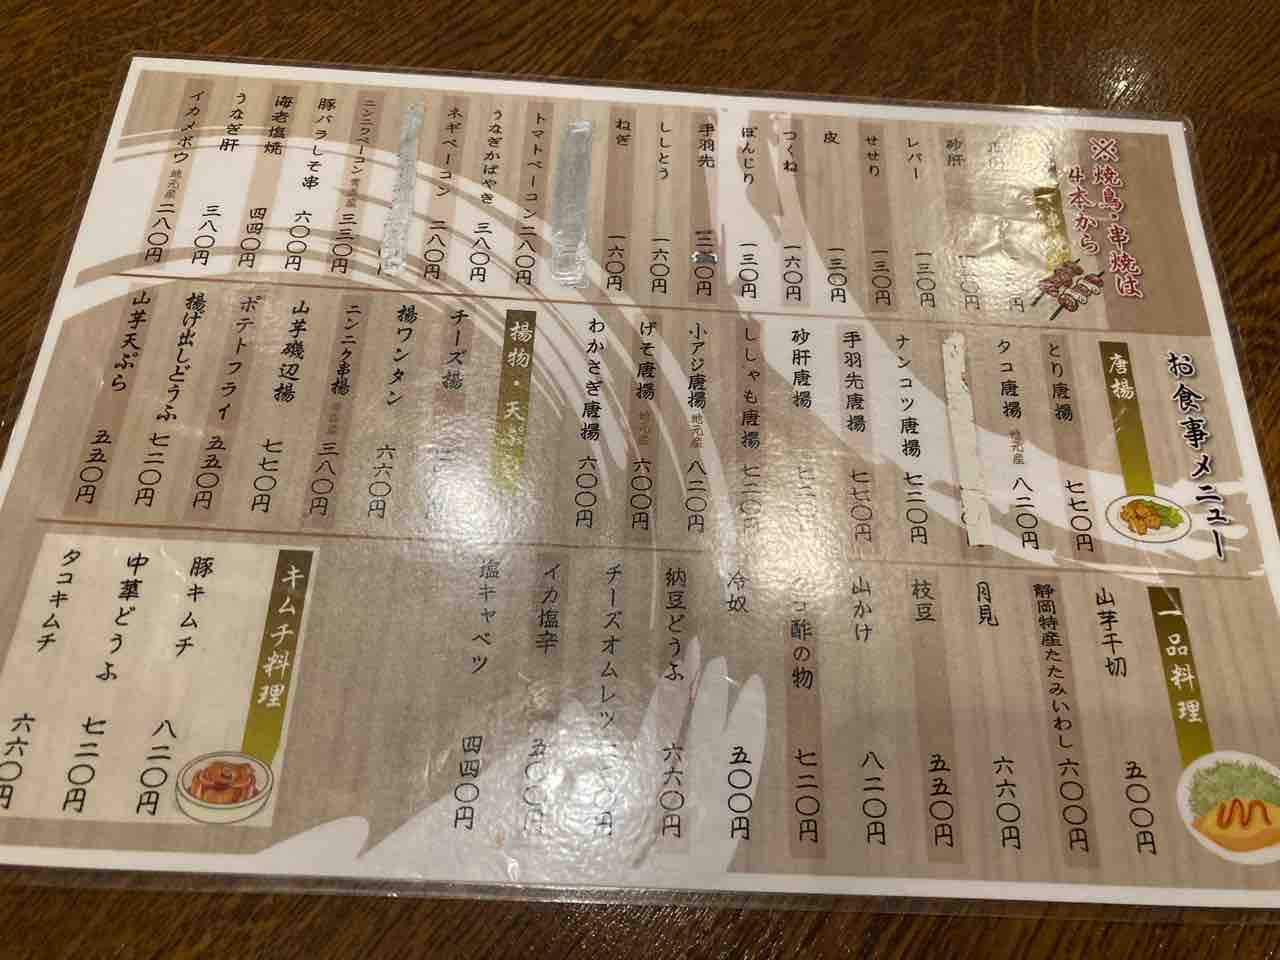 ※焼鳥・串焼は
4本から
お食事メニュー
砂肝
レバー 一三〇円
せせり 一三〇円
皮 一三〇円
つくね 一六〇円
ぼんじり 一三〇円
手羽先
ししとう 一六〇円
ねぎ 一六〇円
トマトベーコン 二八〇円
うなぎかばやき 三八〇円
ネギベーコン 二八〇円
ニンニクベーコン 青森産 三三〇円
豚バラしそ串 六〇〇円
海老塩焼 四四〇円
うなぎ肝 三八〇円
イカメボウ 地元産 二八〇円
唐揚
とり唐揚 七七〇円
タコ唐揚 地元産 八二〇円
ナンコツ唐揚 七二〇円
手羽先唐揚 七七〇円
砂肝唐揚 七二〇円
ししゃも唐揚 七二〇円
小アジ唐揚 地元産 八二〇円
げそ唐揚 地元産 六〇〇円
わかさぎ唐揚 六〇〇円
揚物・天ぷら
チーズ揚
揚ワンタン 六六〇円
ニンニク串揚 三八〇円
山芋磯辺揚 七七〇円
ポテトフライ 五五〇円
揚げ出しどうふ 七二〇円
山芋天ぷら 五五〇円
一品料理
山芋千切 五〇〇円
静岡特産たたみいわし 六〇〇円
月見 六六〇円
枝豆 五五〇円
山かけ 八二〇円
酢の物 七二〇円
冷奴 五〇〇円
納豆どうふ 六六〇円
チーズオムレツ
イカ塩辛 五〇〇円
塩キャベツ 四四〇円
キムチ料理
豚キムチ 八二〇円
中華どうふ 七二〇円
タコキムチ 六六〇円